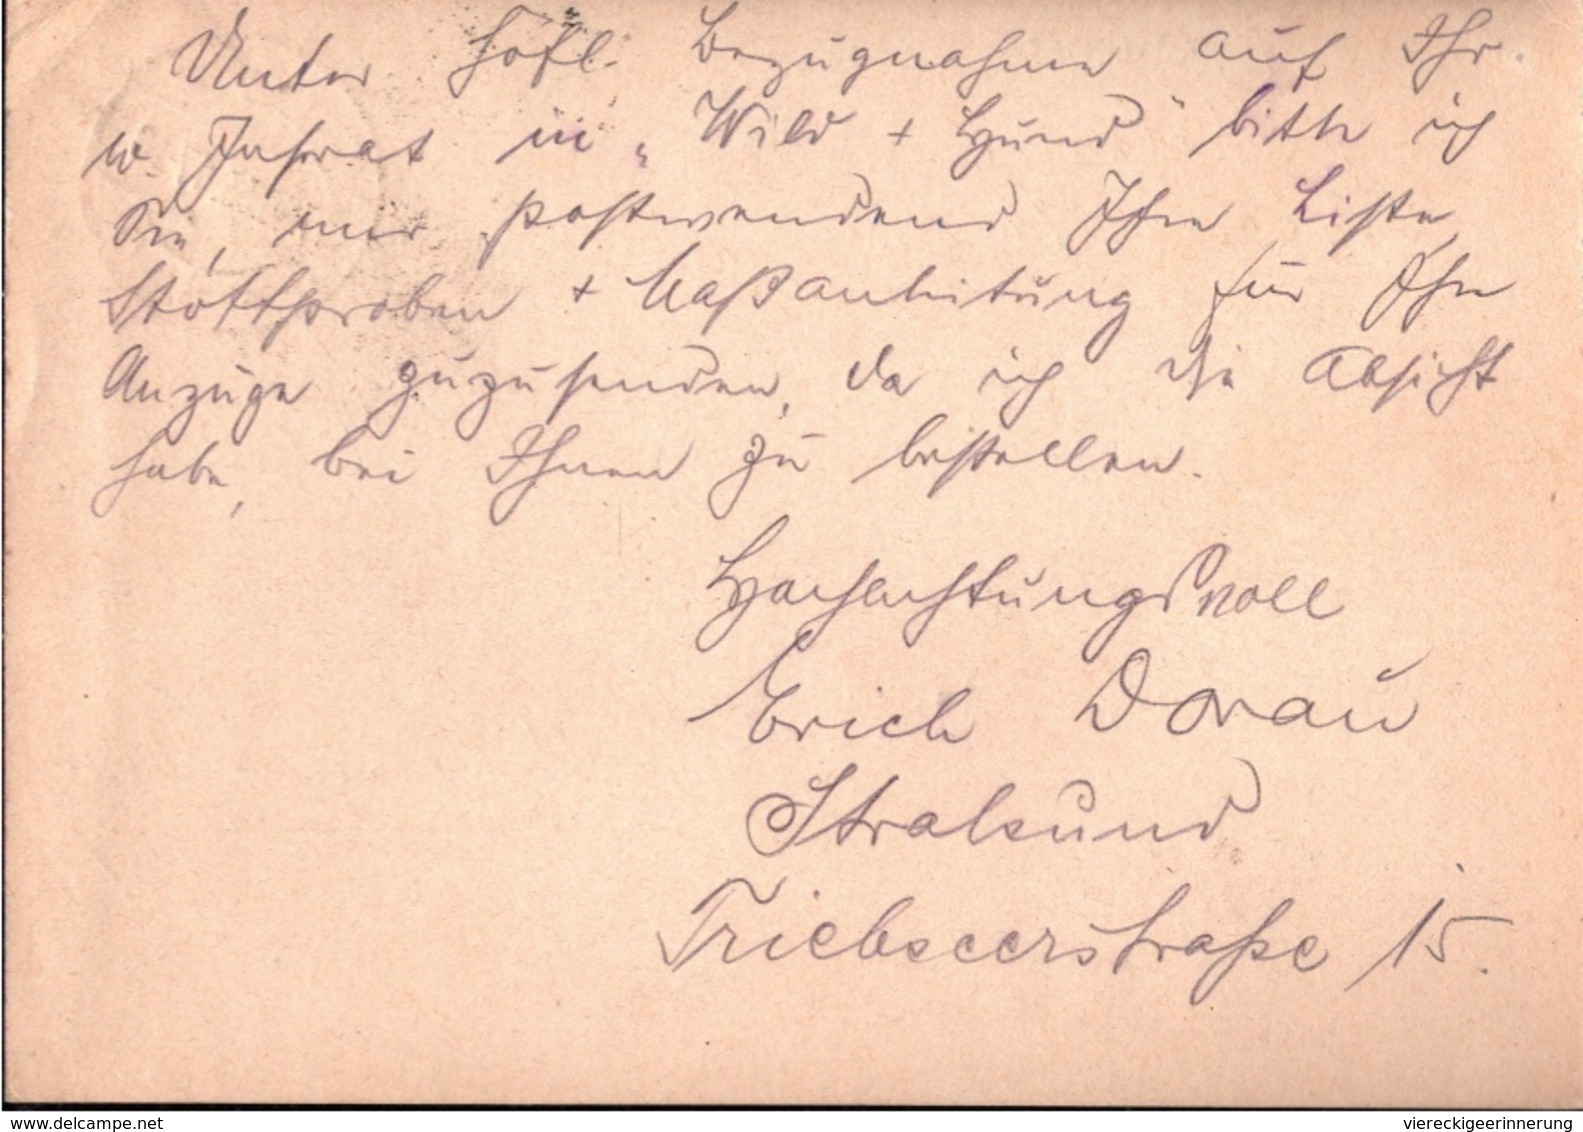 Unter höfl. Bezugnahme auf Ihr
w. Inserat in „Wild + Hund" bitte ich
Sie, mir postwendend Ihre Liste,
Stoffproben + Maßanleitung für Ihre
Anzüge zuzusenden, da ich die Absicht
habe, bei Ihnen zu bestellen.
Hochachtungsvoll
Erich Dorau
Stralsund
Triebseerstraße 15.
www.delcampe.net
viereckigeerinnerung